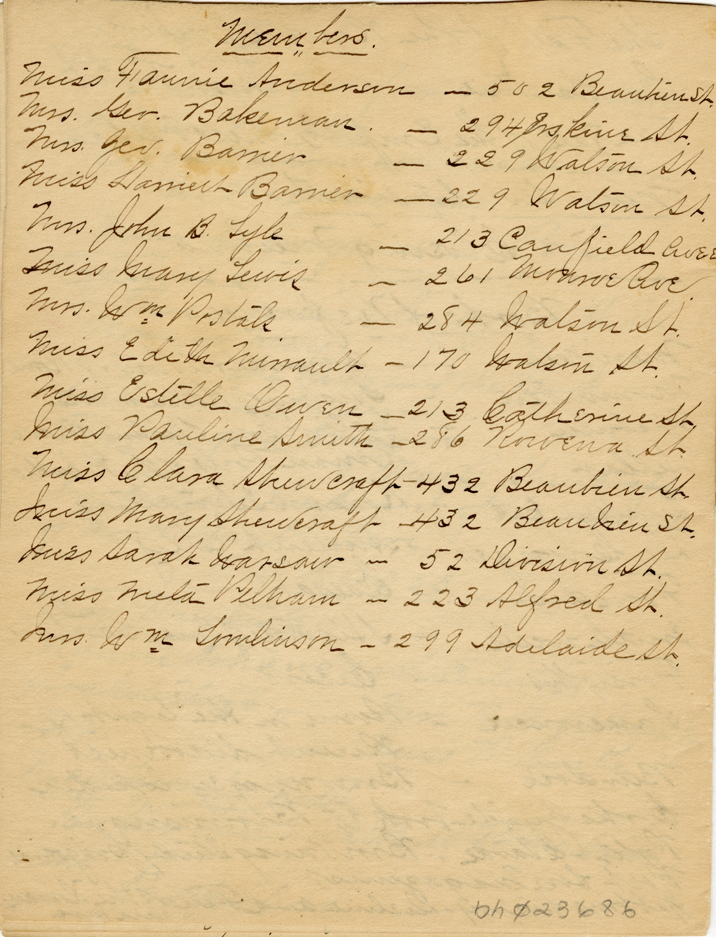 Members.
Miss Fannie Anderson — 502 Beaubien St.
Mrs. Geo. Bakeman. — 294 Erskine St.
Mrs. Geo. Barrier — 229 Watson St.
Miss Harriett Barrier — 229 Watson St.
Mrs. John B. Lyle — 213 Canfield Ave
Miss Mary Lewis — 261 Monroe Ave.
Mrs. Wm Postals — 284 Watson St.
Miss Edith Mirrault — 170 Watson St.
Miss Estelle Owen — 213 Catherine St
Miss Pauline Smith — 286 Rowena St.
Miss Clara Shewcraft — 432 Beaubien St.
Miss Mary Shewcraft — 432 Beaubien St.
Miss Sarah Warsaw — 52 Division St.
Miss Meta Pelham — 223 Alfred St.
Mrs. Wm Tomlinson — 299 Adelaide St.
bh023686